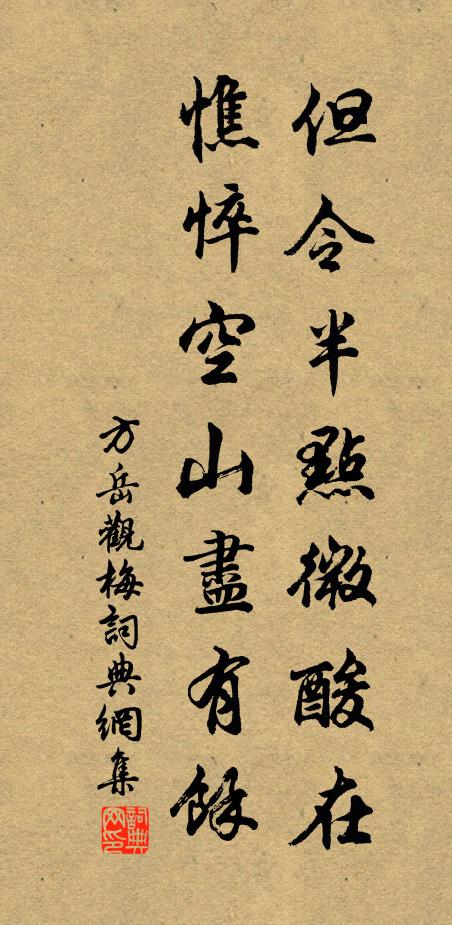 但令半點微酸在
憔悴空山盡有餘
方岳觀梅詞典網集
詞典網印